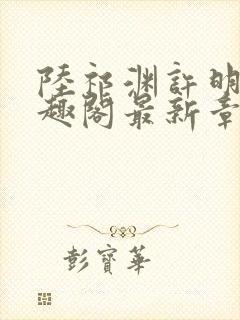 陸祁渊許明
趣閣最新章
彭寶華